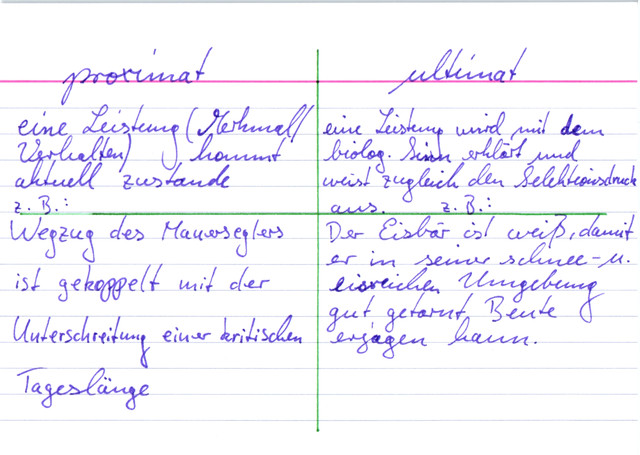 proximat
eine Leistung (Merkmal/
Verhalten) kommt
aktuell zustande
z. B.:
Wegzug des Mauerseglers
ist gekoppelt mit der
Unterschreitung einer kritischen
Tageslänge
ultimat
eine Leistung wird mit dem
biolog. Sinn erklärt und
weist zugleich den Selektionsdruck
aus. z. B.:
Der Eisbär ist weiß, damit
er in seiner schnee- u.
eisreichen Umgebung
gut getarnt, Beute
erjagen kann.